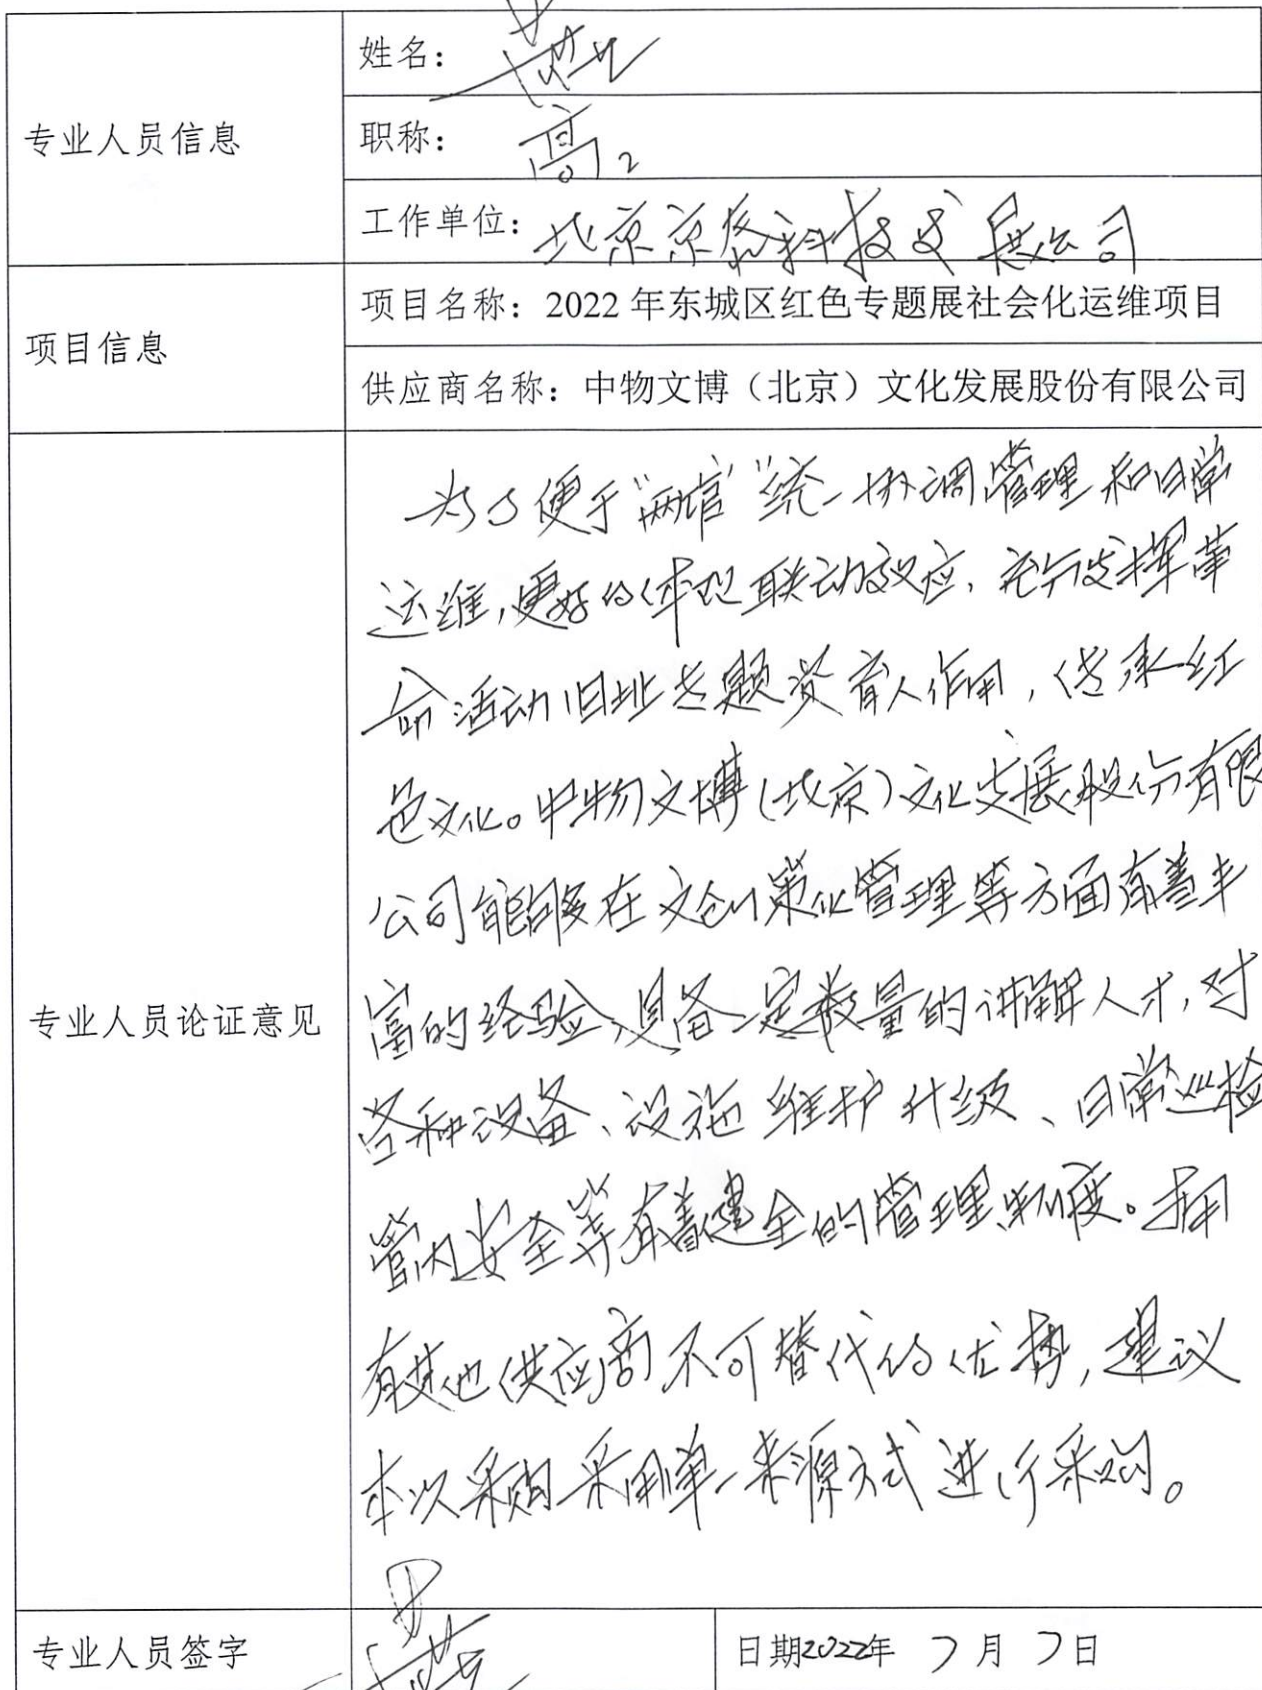 专业人员信息
姓名：
职称：高工
工作单位：北京京
科技发展公司
项目信息
项目名称：2022 年东城区红色专题展社会化运维项目
供应商名称：中物文博（北京）文化发展股份有限公司
专业人员论证意见
为了便于“两馆”统一协调管理和日常
运维，更好的体现联动效应，充分发挥革
命活动旧址专题资育人作用，传承红
色文化。中物文博（北京）文化发展股份有限
公司能够在文创策化管理等方面有着丰
富的经验，具备一定数量的讲解人才，对
各种设备、设施维护升级、日常巡检
馆内安全等有着健全的管理制度。拥
有其他供应商不可替代的优势，建议
本次采购采用单一来源方式进行采购。
专业人员签字
日期2022年 7月 7日